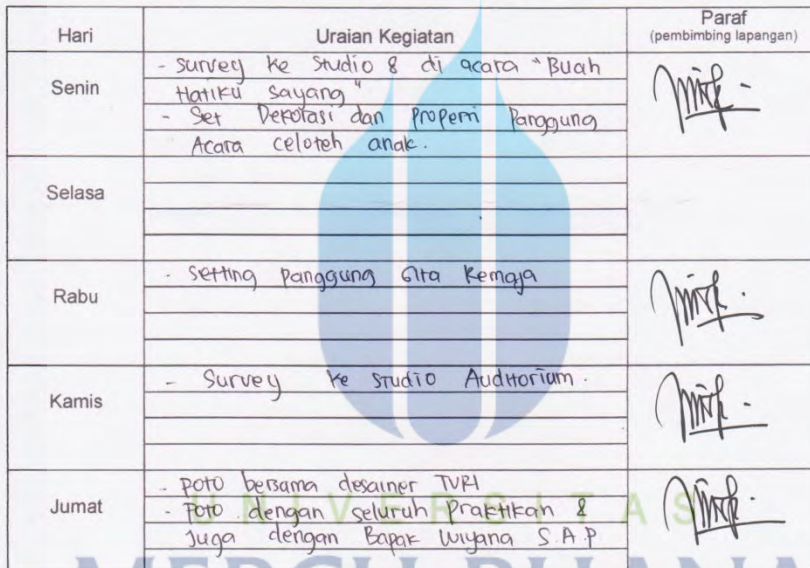 Hari Uraian Kegiatan Paraf
(pembimbing lapangan)
Senin
- Survey ke Studio 8 di acara "Buah
Hatiku Sayang"
- Set Dekorasi dan Properti Panggung
Acara celoteh anak.
Selasa
Rabu
- Setting panggung Gita Remaja
Kamis
- Survey ke Studio Auditorium.
Jumat
- Poto bersama desainer TVRI
- Poto dengan seluruh Praktikan &
Juga dengan Bapak Wiyana S.A.P
UNIVERSITAS
MERCU BUANA